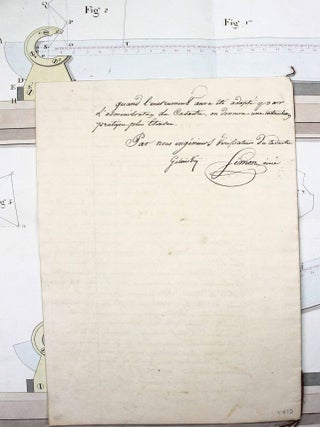 Fig 2
Fig 1
D
E
Quand l'instrument aura été adopté par
l'administration du Cadastre, on donnera une instruction
pratique plus étendue.
Par nous ingénieurs vérificateurs du Cadastre
Simon